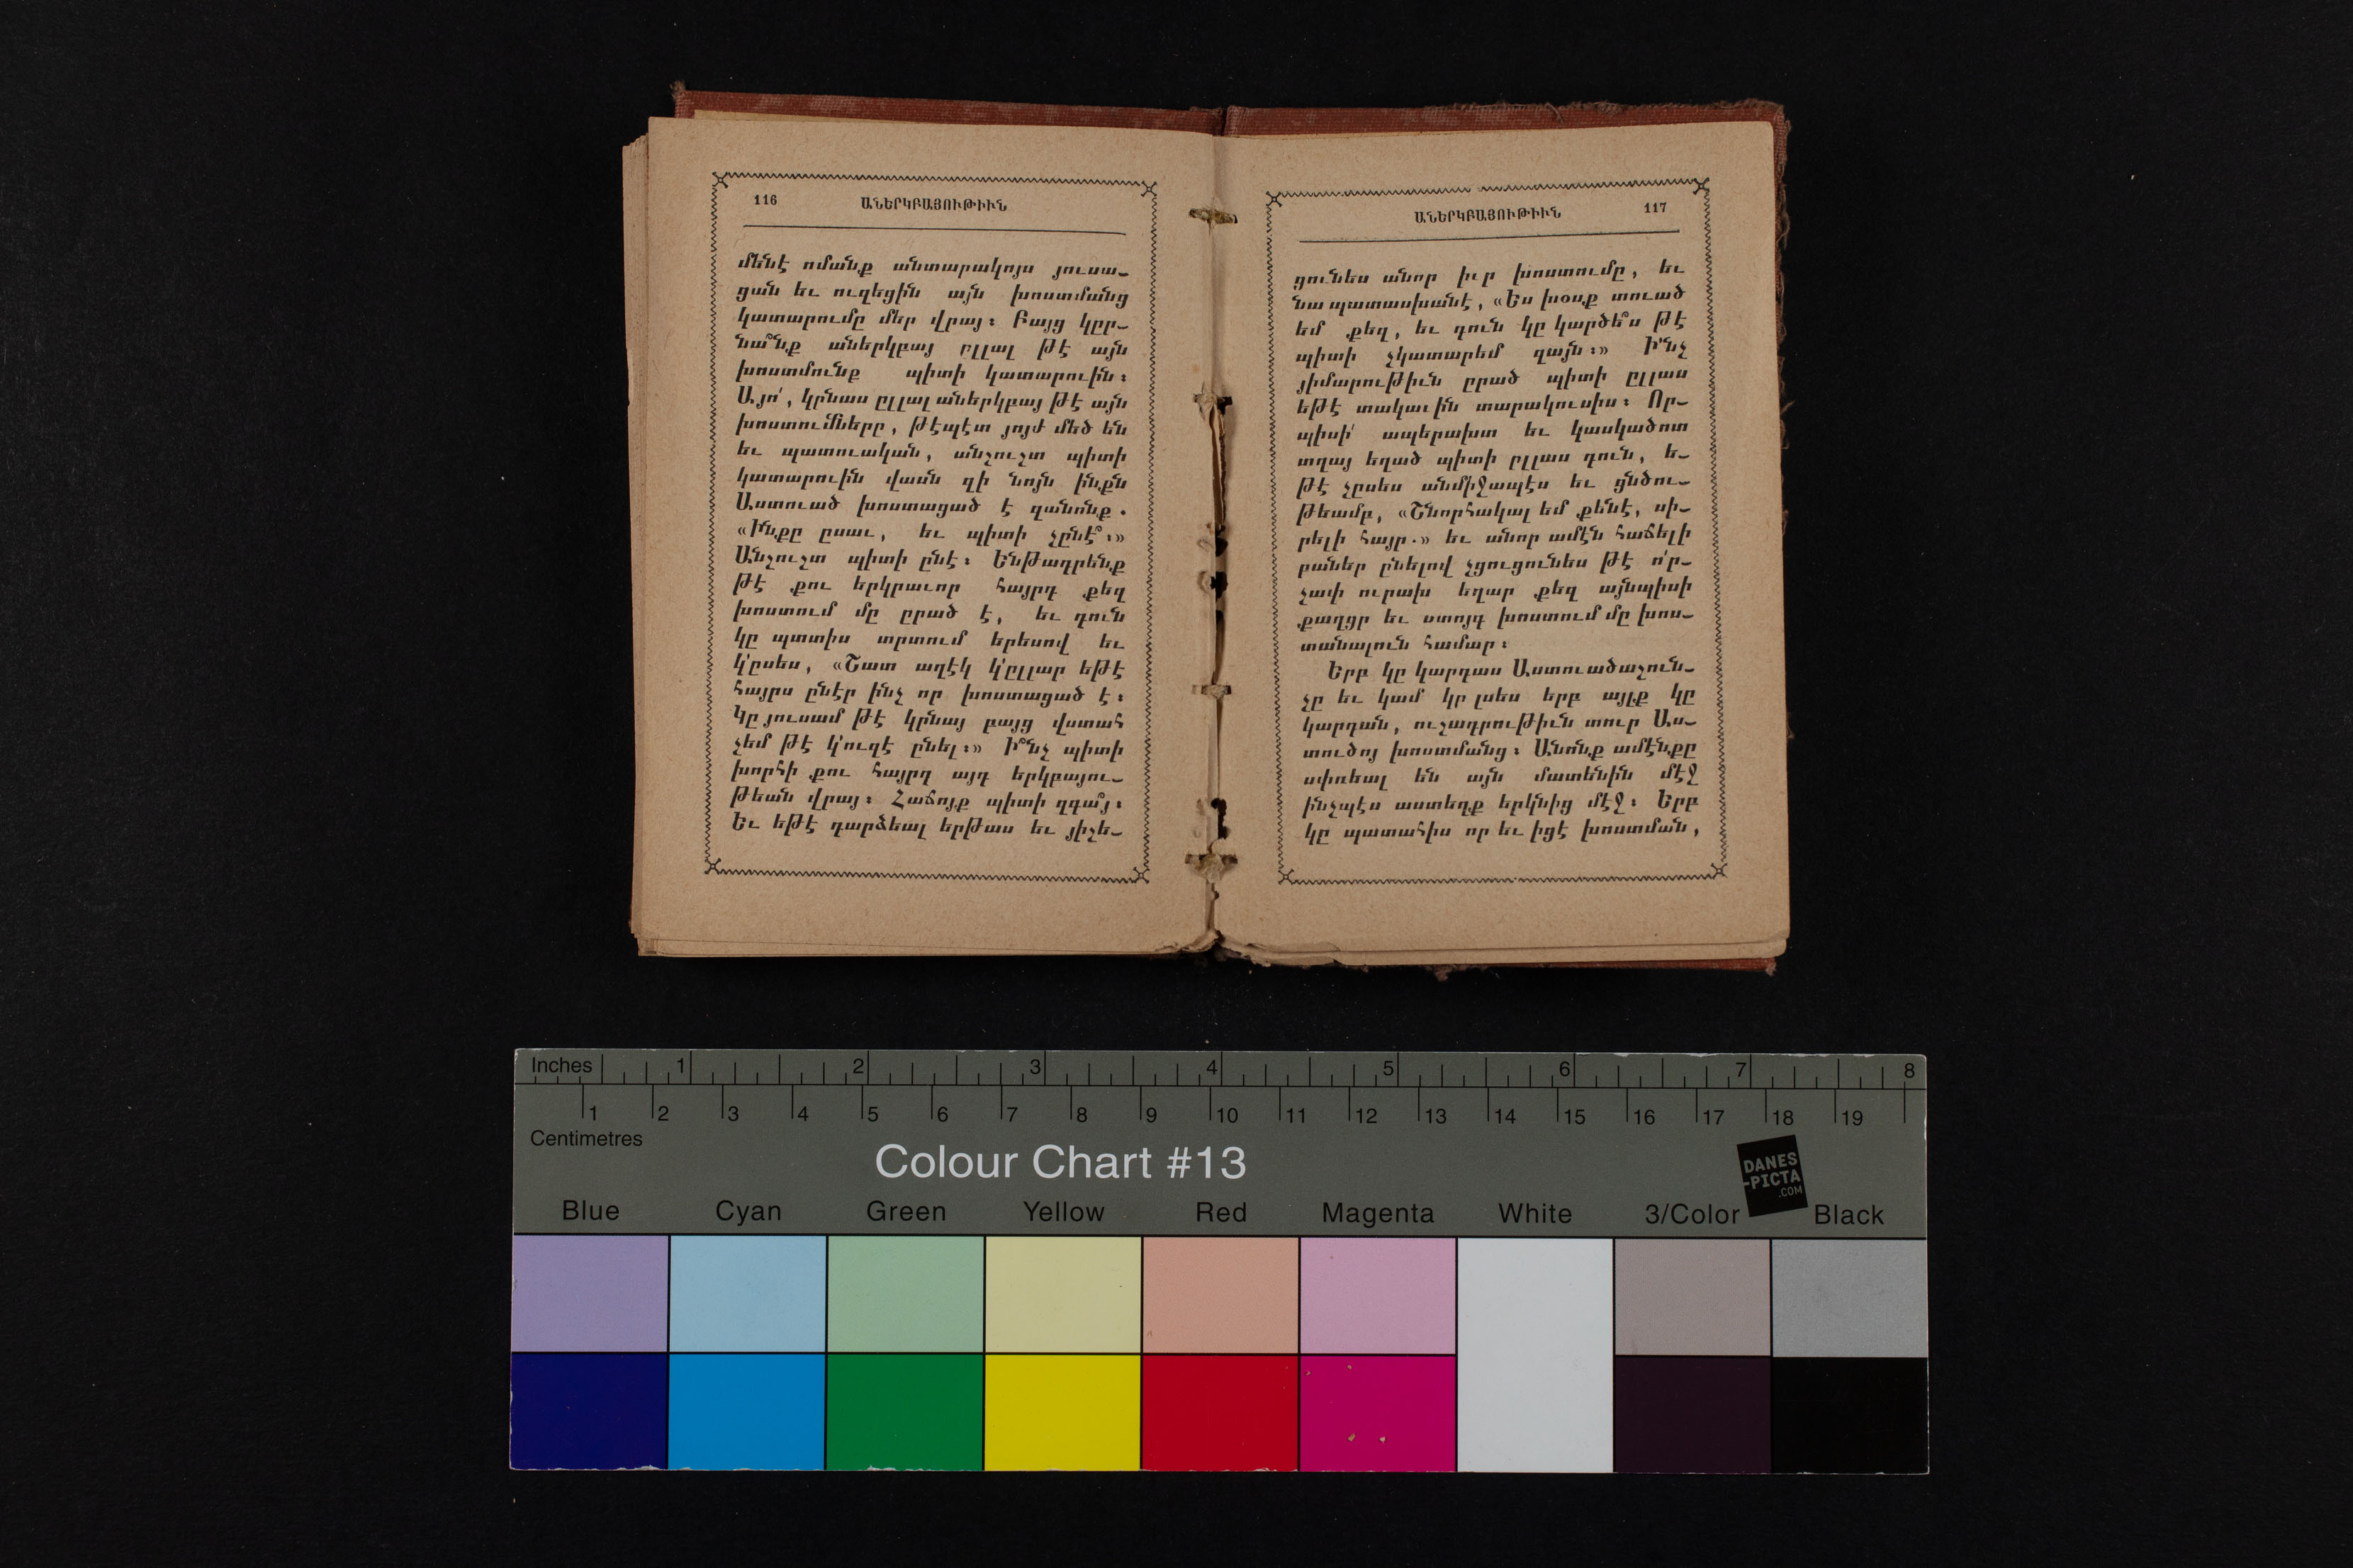 116
ԱՆԵՐԿԲԱՅՈՒԹԻՒՆ
մենէ ոմանք անտարակոյս յուսա-
ցան եւ ուզեցին այն խոստմանց
կատարումը մեր վրայ։ Բայց կըր-
նա՞նք աներկբայ ըլլալ թէ այն
խոստմունք պիտի կատարուին։
Այո՛, կրնաս ըլլալ աներկբայ թէ այն
խոստումները, թէպէտ յոյժ մեծ են
եւ պատուական, անշուշտ պիտի
կատարուին վասն զի նոյն ինքն
Աստուած խոստացած է զանոնք.
«Ինքը ըսաւ, եւ պիտի չընէ՞։»
Անշուշտ պիտի ընէ։ Ենթադրենք
թէ քու երկրաւոր հայրդ քեզ
խոստում մը ըրած է, եւ դուն
կը պտտիս տրտում երեսով եւ
կ՚ըսես, «Շատ աղէկ կ՚ըլլար եթէ
հայրս ընէր ինչ որ խոստացած է։
Կը յուսամ թէ կրնայ բայց վստահ
չեմ թէ կ՚ուզէ ընել։» Ի՞նչ պիտի
խորհի քու հայրդ այդ երկբայու-
թեան վրայ։ Հաճոյք պիտի զգա՞յ։
Եւ եթէ դարձեալ երթաս եւ յիշե-
ԱՆԵՐԿԲԱՅՈՒԹԻՒՆ
117
ցունես անոր իւր խոստումը, եւ
նա պատասխանէ, «Ես խօսք տուած
եմ քեզ, եւ դուն կը կարծե՞ս թէ
պիտի չկատարեմ զայն։» Ի՜նչ
յիմարութիւն ըրած պիտի ըլլաս
եթէ տակաւին տարակուսիս։ Որ-
պիսի՛ ապերախտ եւ կասկածոտ
տղայ եղած պիտի ըլլաս դուն, ե-
թէ չըսես անմիջապէս եւ ցնծու-
թեամբ, «Շնորհակալ եմ քենէ, սի-
րելի հայր.» եւ անոր ամէն հաճելի
բաներ ընելով չցուցունես թէ ո՛ր-
չափ ուրախ եղար քեզ այնպիսի
քաղցր եւ ստոյգ խոստում մը խոս-
տանալուն համար։
Երբ կը կարդաս Աստուածաշուն-
չը եւ կամ կը լսես երբ այլք կը
կարդան, ուշադրութիւն տուր Աս-
տուծոյ խոստմանց։ Անոնք ամէնքը
սփռեալ են այն մատենին մէջ
ինչպէս աստեղք երկնից մէջ։ Երբ
կը պատահիս որ եւ իցէ խոստման,
Inches
1 2 3 4 5 6 7 8
1 2 3 4 5 6 7 8 9 10 11 12 13 14 15 16 17 18 19
Centimetres
Colour Chart #13
DANES
-PICTA
.COM
Blue Cyan Green Yellow Red Magenta White 3/Color Black